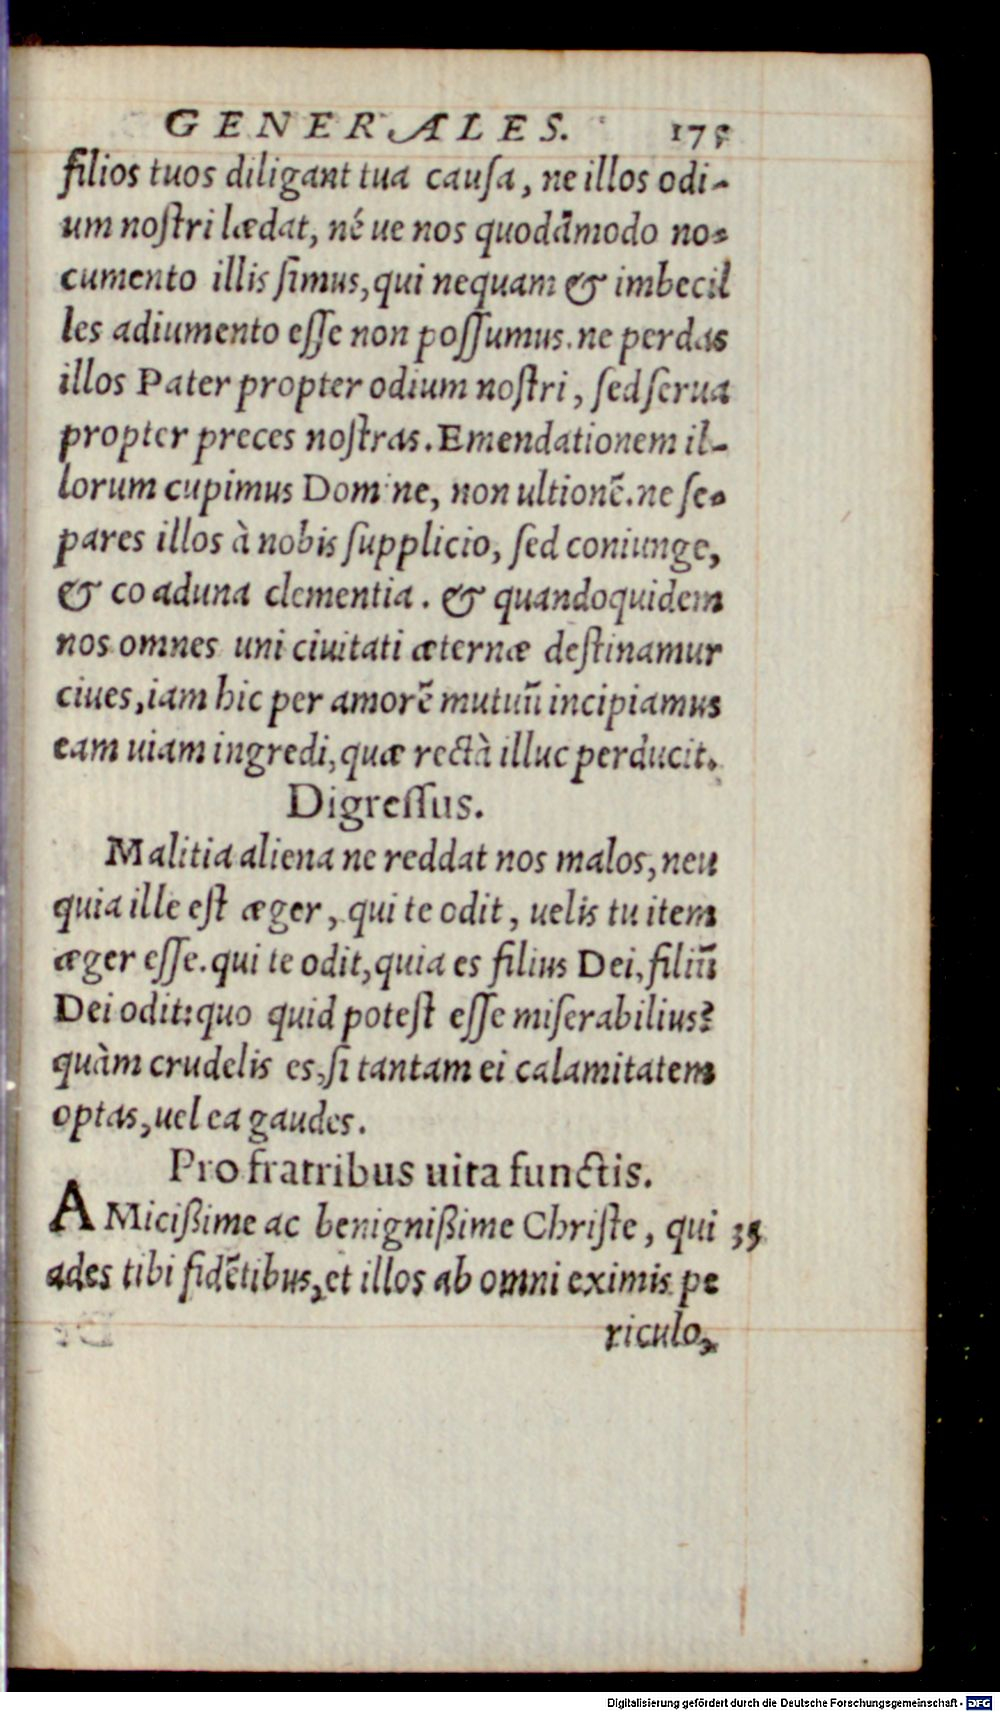 GENERALES. 175
filios tuos diligant tua cauſa, ne illos odi-
um noſtri lædat, né ue nos quodāmodo no-
cumento illis ſimus, qui nequam & imbecil
les adiumento eſſe non poſſumus. ne perdas
illos Pater propter odium noſtri, ſed ſerua
propter preces noſtras. Emendationem il-
lorum cupimus Domine, non ultionē. ne ſe-
pares illos à nobis ſupplicio, ſed coniunge,
& co aduna clementia. & quandoquidem
nos omnes uni ciuitati æternæ deſtinamur
ciues, iam hic per amorē mutuū incipiamus
eam uiam ingredi, quæ rectà illuc perducit.
Digreſſus.
Malitia aliena ne reddat nos malos, neu
quia ille eſt æger, qui te odit, uelis tu item
æger eſſe. qui te odit, quia es filius Dei, filiū
Dei odit: quo quid poteſt eſſe miſerabilius?
quàm crudelis es, ſi tantam ei calamitatem
optas, uel ea gaudes.
Pro fratribus uita functis.
AMiciſſime ac benigniſſime Chriſte, qui 35
ades tibi fidētibus, et illos ab omni eximis pe
riculo,
Digitalisierung gefördert durch die Deutsche Forschungsgemeinschaft - DFG